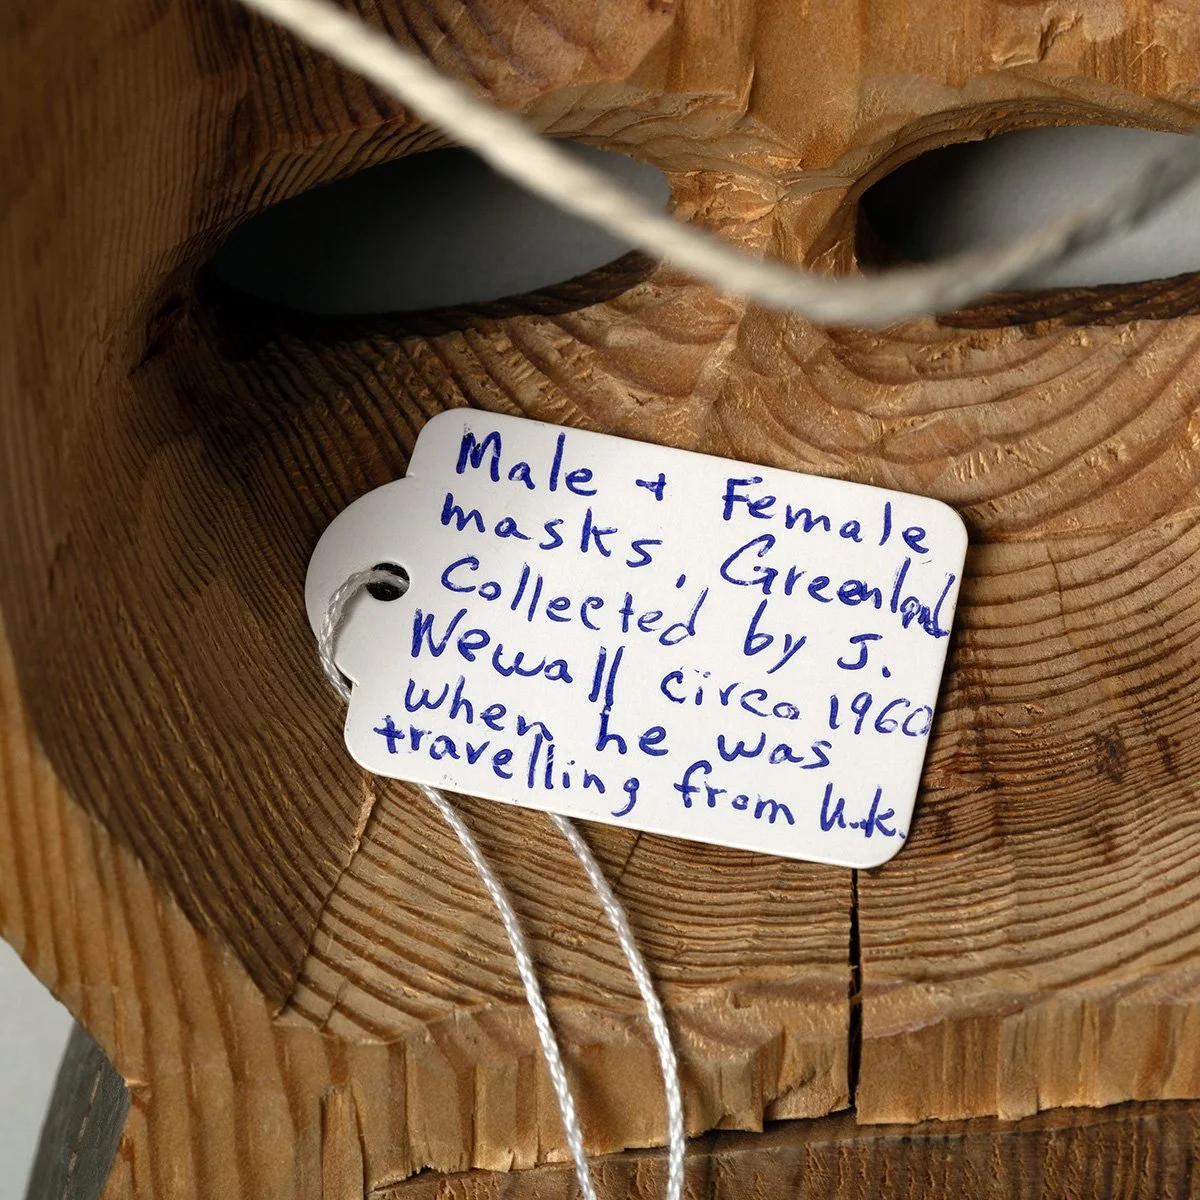 Male + Female
masks, Greenland
Collected by J.
Newall circa 1960
when he was
travelling from U.K.